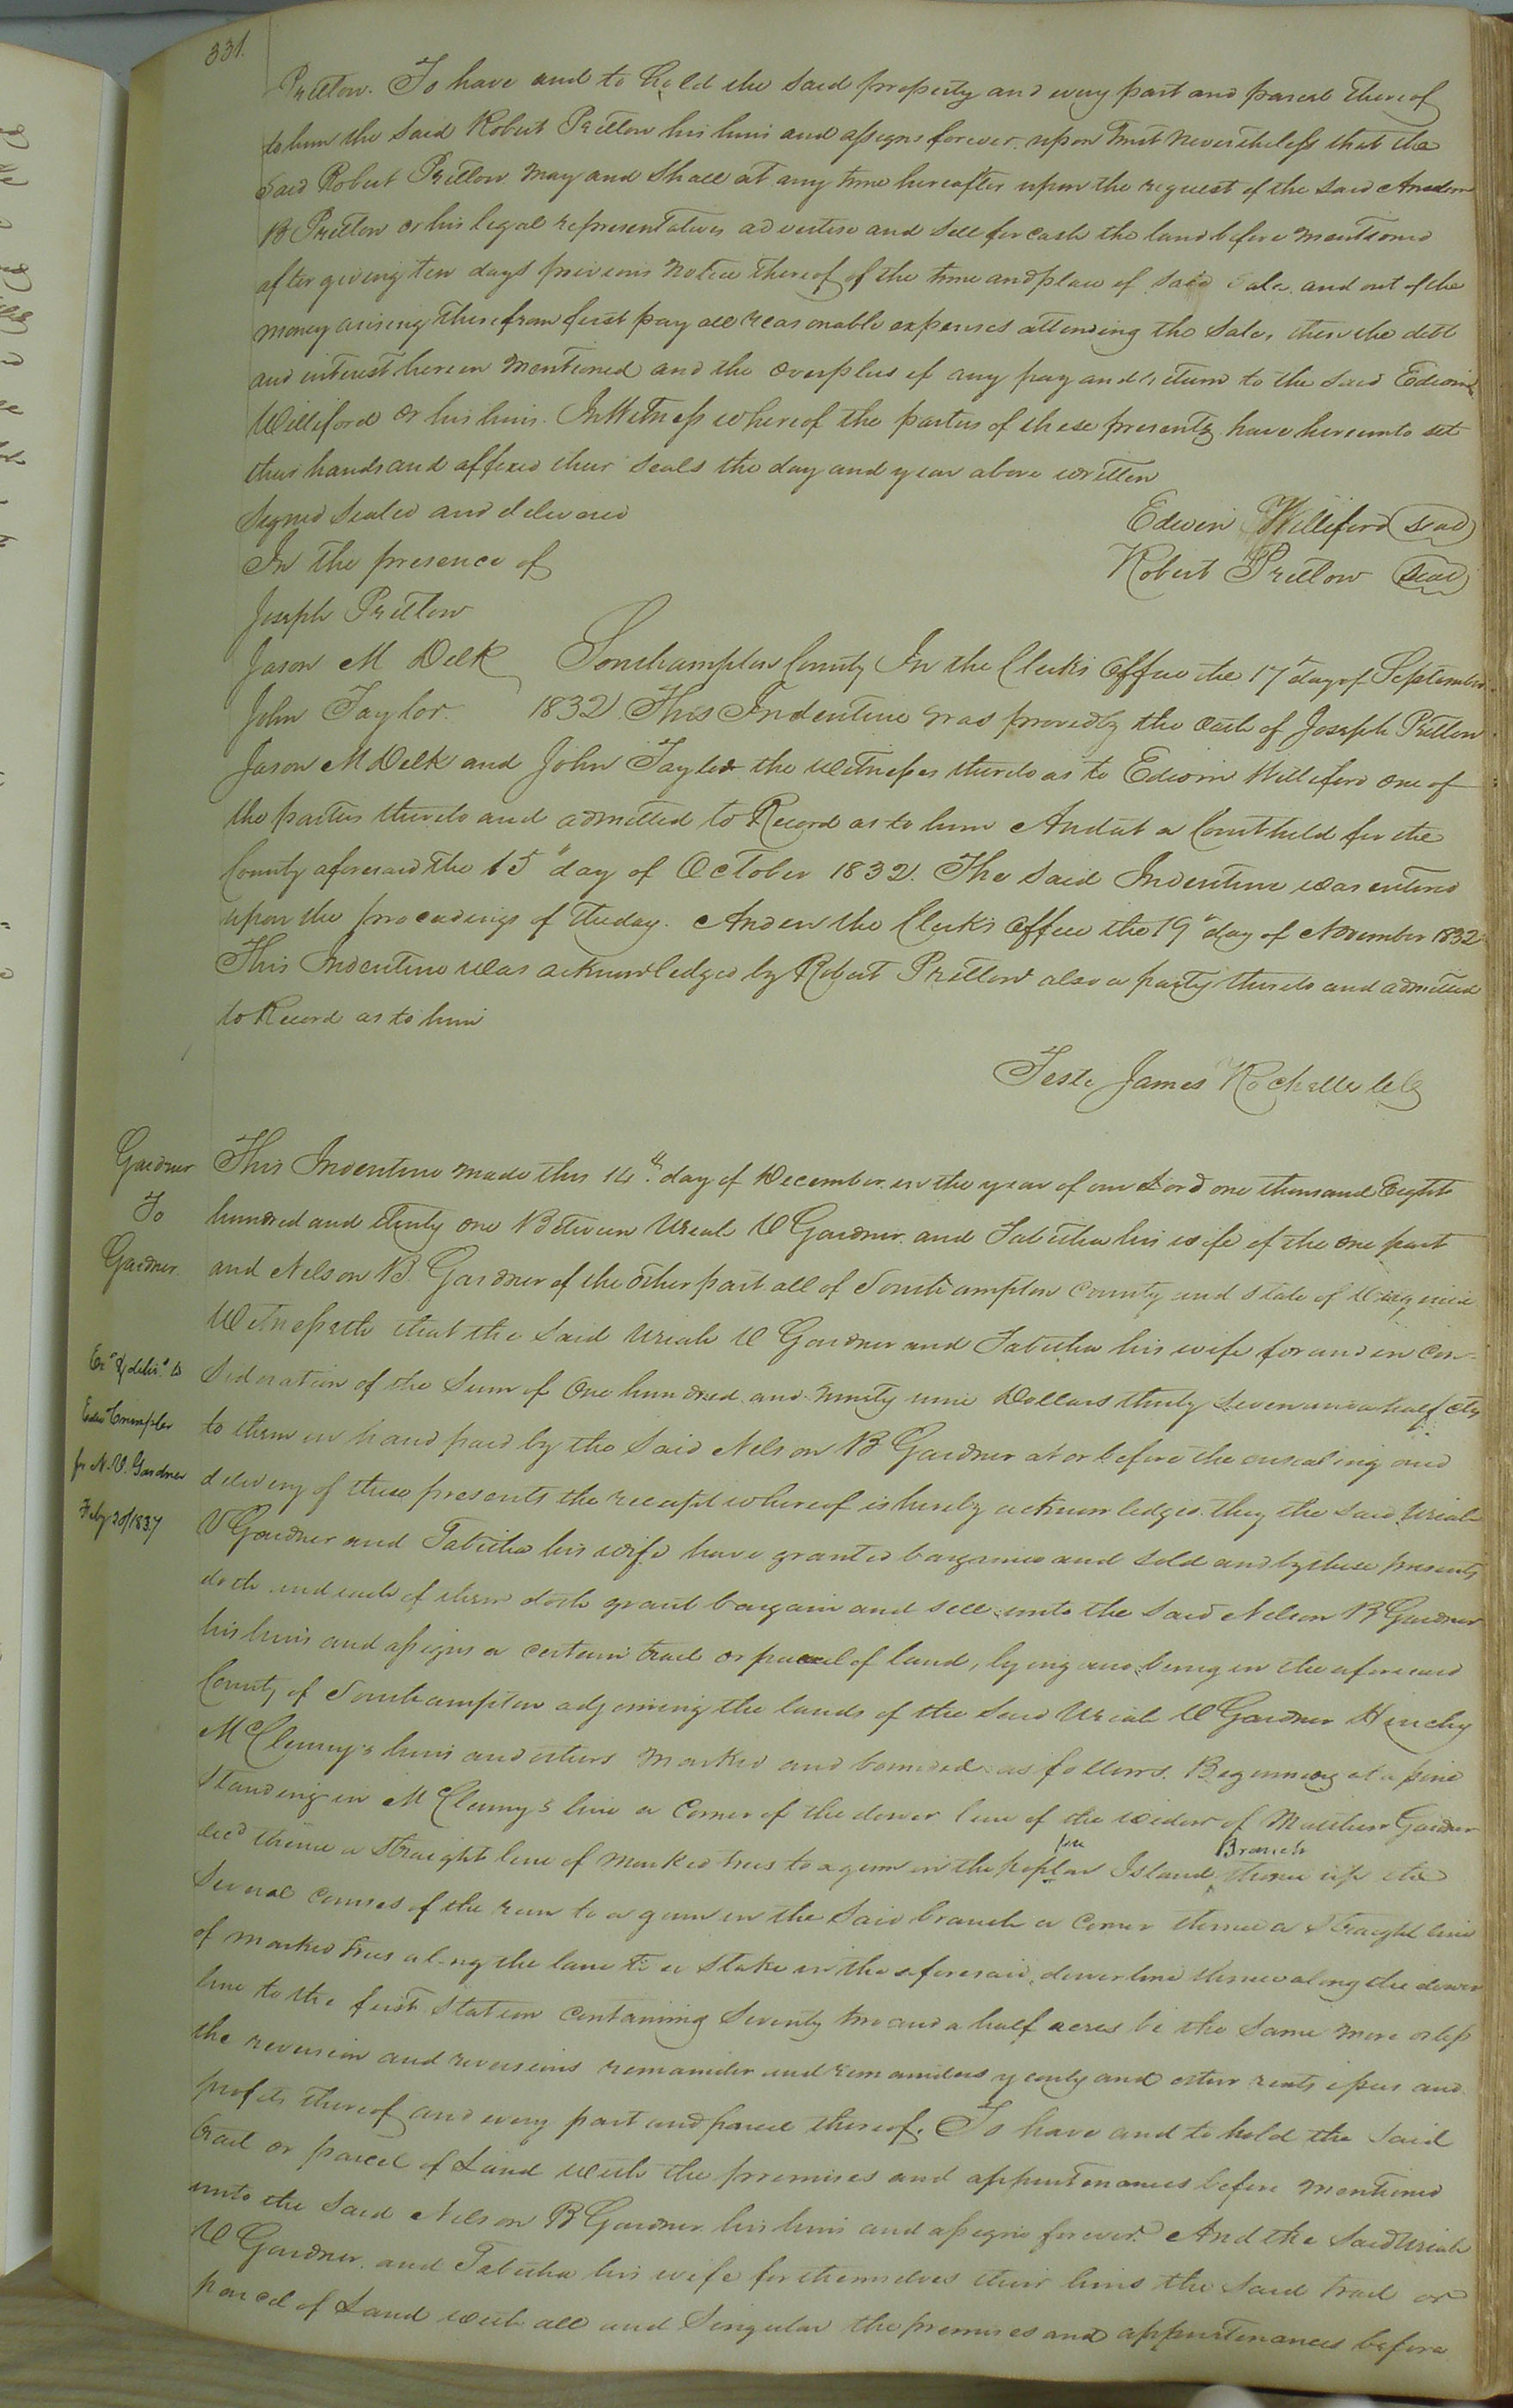 331.
Pretlow. To have and to hold the said property and every part and parcel thereof
to him the said Robert Pretlow his heirs and assigns forever. upon trust nevertheless that the
said Robert Pretlow may and shall at any time hereafter upon the request of the said
B Pretlow or his legal representatives advertise and sell for cash the land before mentioned
after giving ten days previous notice thereof of the time and place of said sale. and out of the
money arising therefrom first pay all reasonable expenses attending the sale, then the debt
and interest herein mentioned and the overplus if any pay and return to the said Edwin
Williford or his heirs. In Witness whereof the parties of these presents have hereunto set
their hands and affixed their seals the day and year above written
Signed Sealed and delivered
Edwin Williford seal
In the presence of
Robert Pretlow seal
Joseph Pretlow
Jason M Delk
John Taylor.
Southampton County In the Clerks Office the 17th day of September
1832. This Indenture was proved by the oath of Joseph Pretlow
Jason M Delk and John Taylor the witnesses thereto as to Edwin Williford one of
the parties thereto and admitted to Record as to him And at a Court held for the
County aforesaid the 15th day of October 1832. The said Indenture was entered
upon the proceedings of the day. And in the Clerks Office the 19th day of November 1832
This Indenture was acknowledged by Robert Pretlow also a party thereto and admitted
to Record as to him
Teste James Rochelle
Gardner
To
Gardner
Exd & delivd to
Crumpler
for N. B. Gardner
Feby 20/1837
This Indenture made this 14th day of December in the year of our Lord one thousand Eight
hundred and thirty one Between Uriah V Gardner and Tabitha his wife of the one part
and Nelson B Gardner of the other part all of Southampton County and State of Virginia
Witnesseth that the said Uriah V Gardner and Tabitha his wife for and in con-
sideration of the sum of One hundred and ninety nine Dollars thirty seven and a half cts
to them in hand paid by the said Nelson B Gardner at or before the ensealing and
delivery of these presents the receipt whereof is hereby acknowledged they the said Uriah
V Gardner and Tabitha his wife have granted bargained and sold and by these presents
doth and each of them doth grant bargain and sell unto the said Nelson B Gardner
his heirs and assigns a certain tract or parcel of land, lying and being in the aforesaid
County of Southampton adjoining the lands of the said Uriah V Gardner Hinchy
McClenny's heirs and others marked and bounded as follows. Beginning at a pine
standing in McClenny's line a corner of the dower line of the widow of Matthew Gardner
decd thence a straight line of marked trees to a gum in the poplar Island Branch thence up the
several courses of the run to a gum in the said branch a corner thence a straight line
of marked trees along the lane to a stake in the aforesaid dower line thence along the dower
line to the first station containing seventy two and a half acres be the same more or less
the reversion and reversions remainder and remainders yearly and other rents issues and
profits thereof and every part and parcel thereof. To have and to hold the said
tract or parcel of Land with the premises and appurtenances before mentioned
unto the said Nelson B Gardner his heirs and assigns forever. And the said Uriah
V Gardner and Tabitha his wife for themselves their heirs the said tract or
parcel of Land with all and singular the premises and appurtenances before